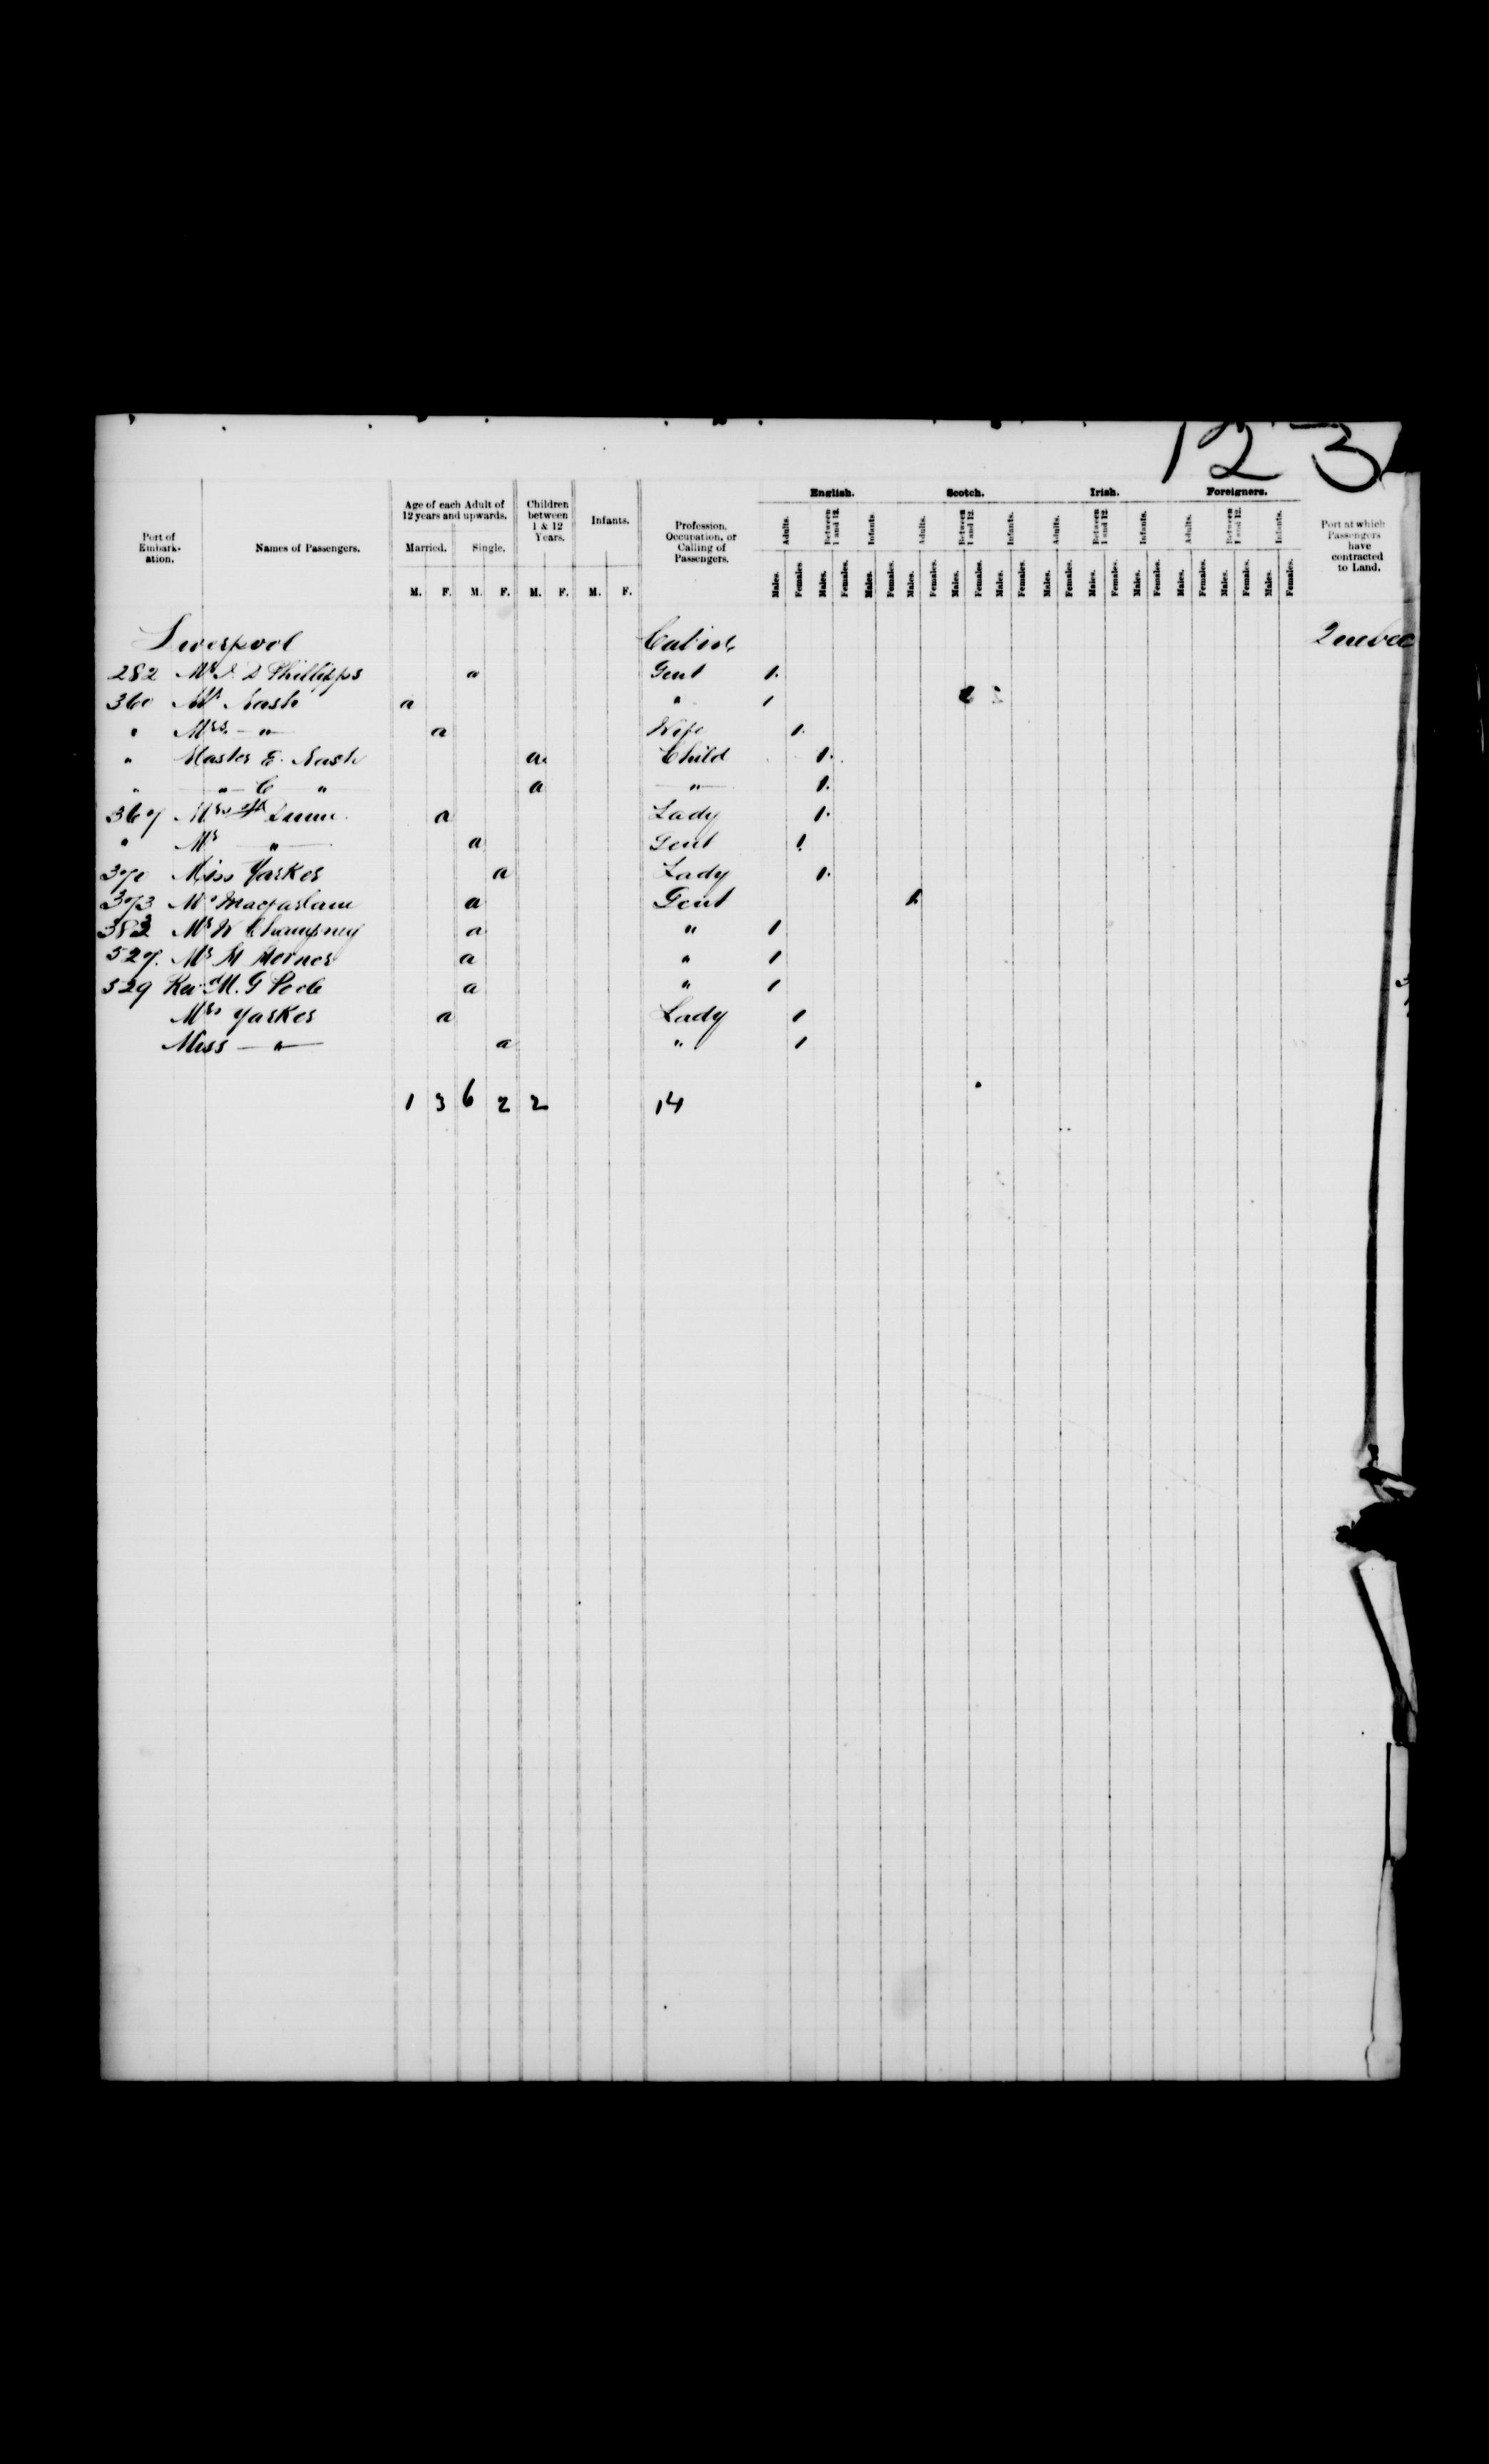 123
English. Scotch. Irish. Foreigners.
Port of Embark-ation. Names of Passengers. Age of each Adult of 12 years and upwards. Children between 1 & 12 Years. Infants. Profession, Occupation, or Calling of Passengers. Adults. Between 1 and 12. Infants. Adults. Between 1 and 12. Infants. Adults. Between 1 and 12. Infants. Adults. Between 1 and 12. Infants. Port at which Passengers have contracted to Land.
Married. Single.
M. F. M. F. M. F. M. F. Males. Females. Males. Females. Males. Females. Males. Females. Males. Females. Males. Females. Males. Females. Males. Females. Males. Females. Males. Females. Males. Females. Males. Females.
Liverpool Cabin
282 Mr D Phillipps a Gent 1
360 Mr Nash a " 1
" Mrs - " - a Wife 1
" Master E. Nash a Child 1
" - " - C " a - " - 1
367 Mrs Dunn a Lady 1
" Mr - " - a Gent 1
370 Miss Yarker a Lady 1
373 Mr Macfarlane a Gent 1
383 Mr W Champney a " 1
527. Mr M a " 1
529 Revd M. G Poole a " 1
Mrs Yarker a Lady 1
Miss - " - a " 1
1 3 6 2 2 14